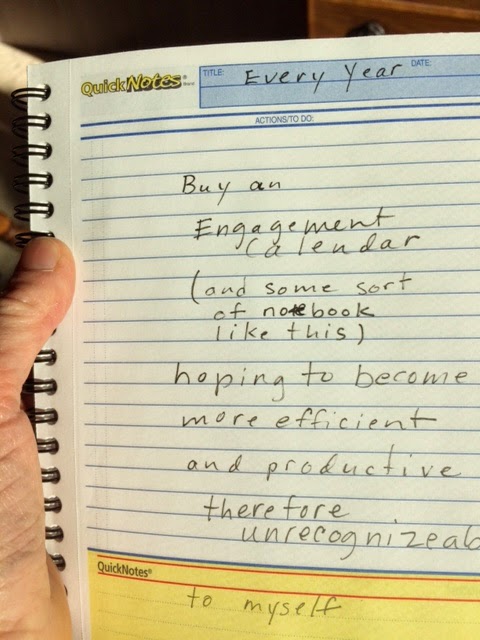 QuickNotes® Brand
TITLE: Every Year DATE:
ACTIONS/TO DO:
Buy an
Engagement
Calendar
(and some sort
of notebook
like this)
hoping to become
more efficient
and productive
therefore
unrecognizeab
QuickNotes®
to myself